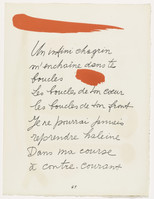 Un infini chagrin
m'enchaîne dans tes
boucles
Les boucles de ton cœur
les boucles de ton front
Je ne pourrai jamais
reprendre haleine
Dans ma course
à contre courant